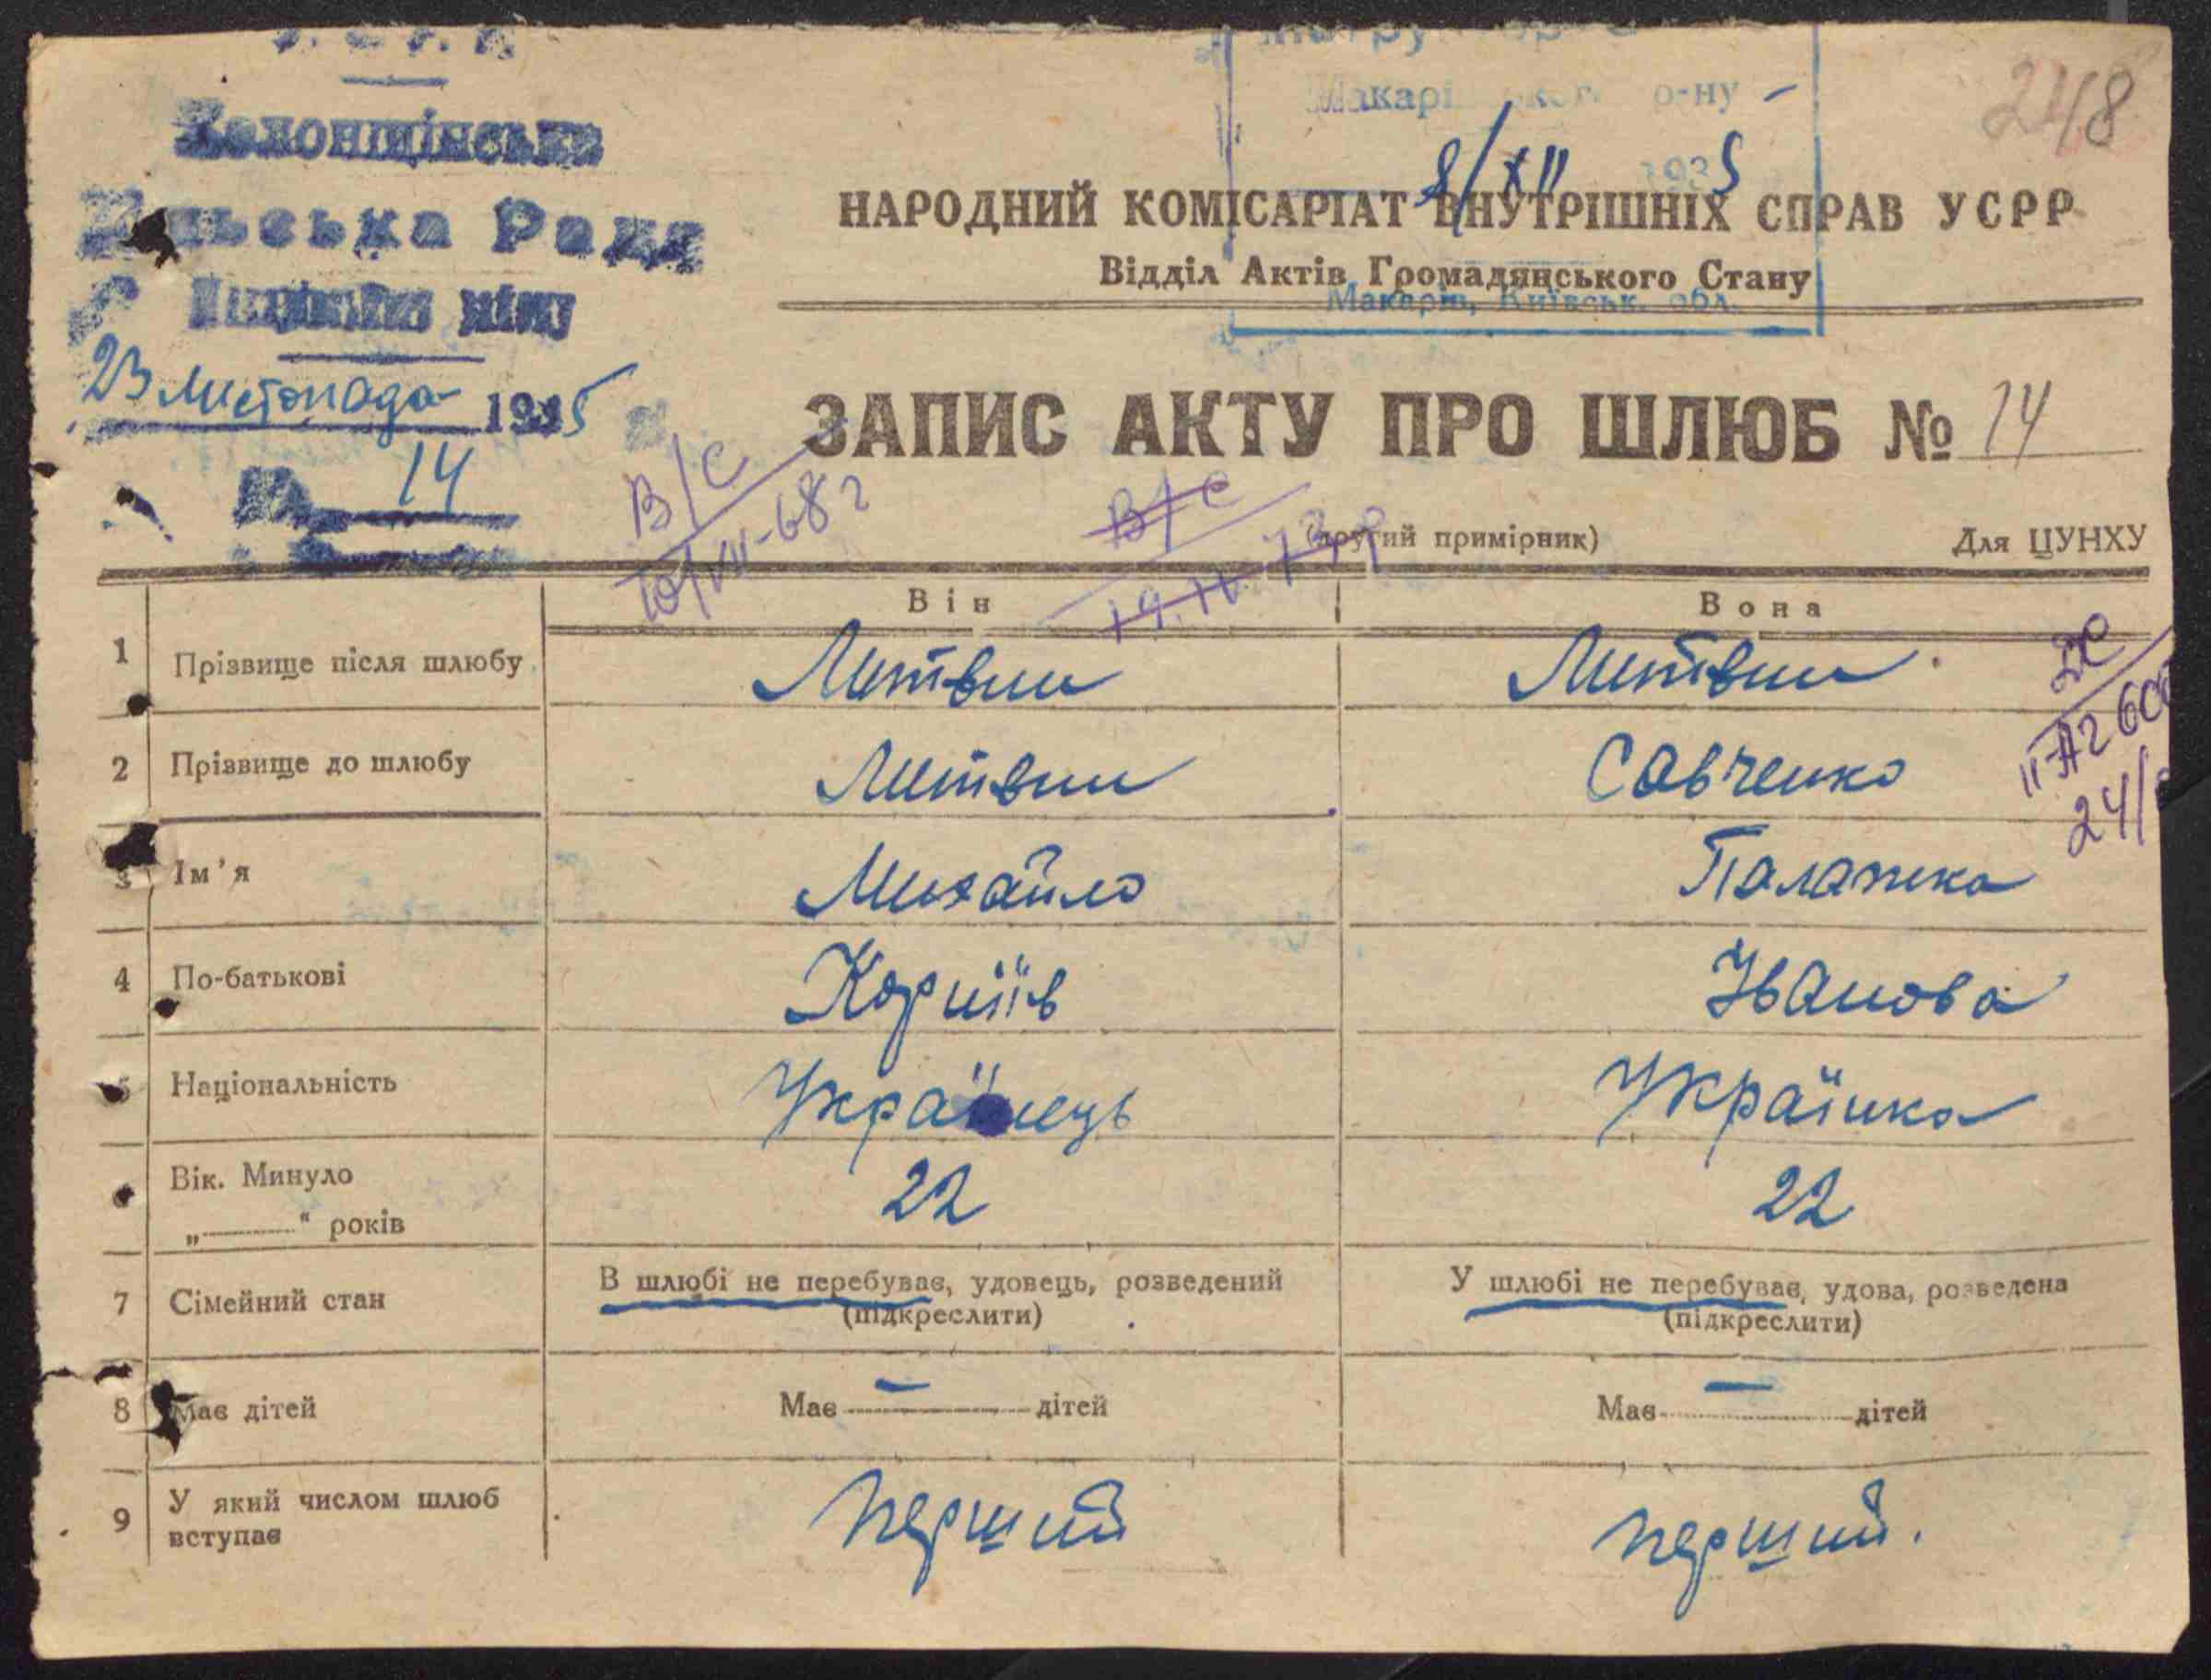 Колонщінська
Рада
23 листопада 1935
14
Макарі р-ну
8/XII 1935
248
НАРОДНИЙ КОМІСАРІАТ ВНУТРІШНІХ СПРАВ УСРР
Відділ Актів Громадянського Стану
Макарів, Київськ. обл.
ЗАПИС АКТУ ПРО ШЛЮБ № 14
В/С
10/VII-68 г
В/С
(другий примірник) Для ЦУНХУ
Він Вона
1 Прізвище після шлюбу Литвин Литвин
2 Прізвище до шлюбу Литвин Савченко
3 Ім'я Михайло Палажка
4 По-батькові Корніїв Іванова
5 Національність Українець Українка
Вік. Минуло
„ “ років 22 22
7 Сімейний стан В шлюбі не перебуває, удовець, розведений У шлюбі не перебуває, удова, розведена
(підкреслити) (підкреслити)
8 Має дітей Має — дітей Має — дітей
9 У який числом шлюб
вступає перший перший.